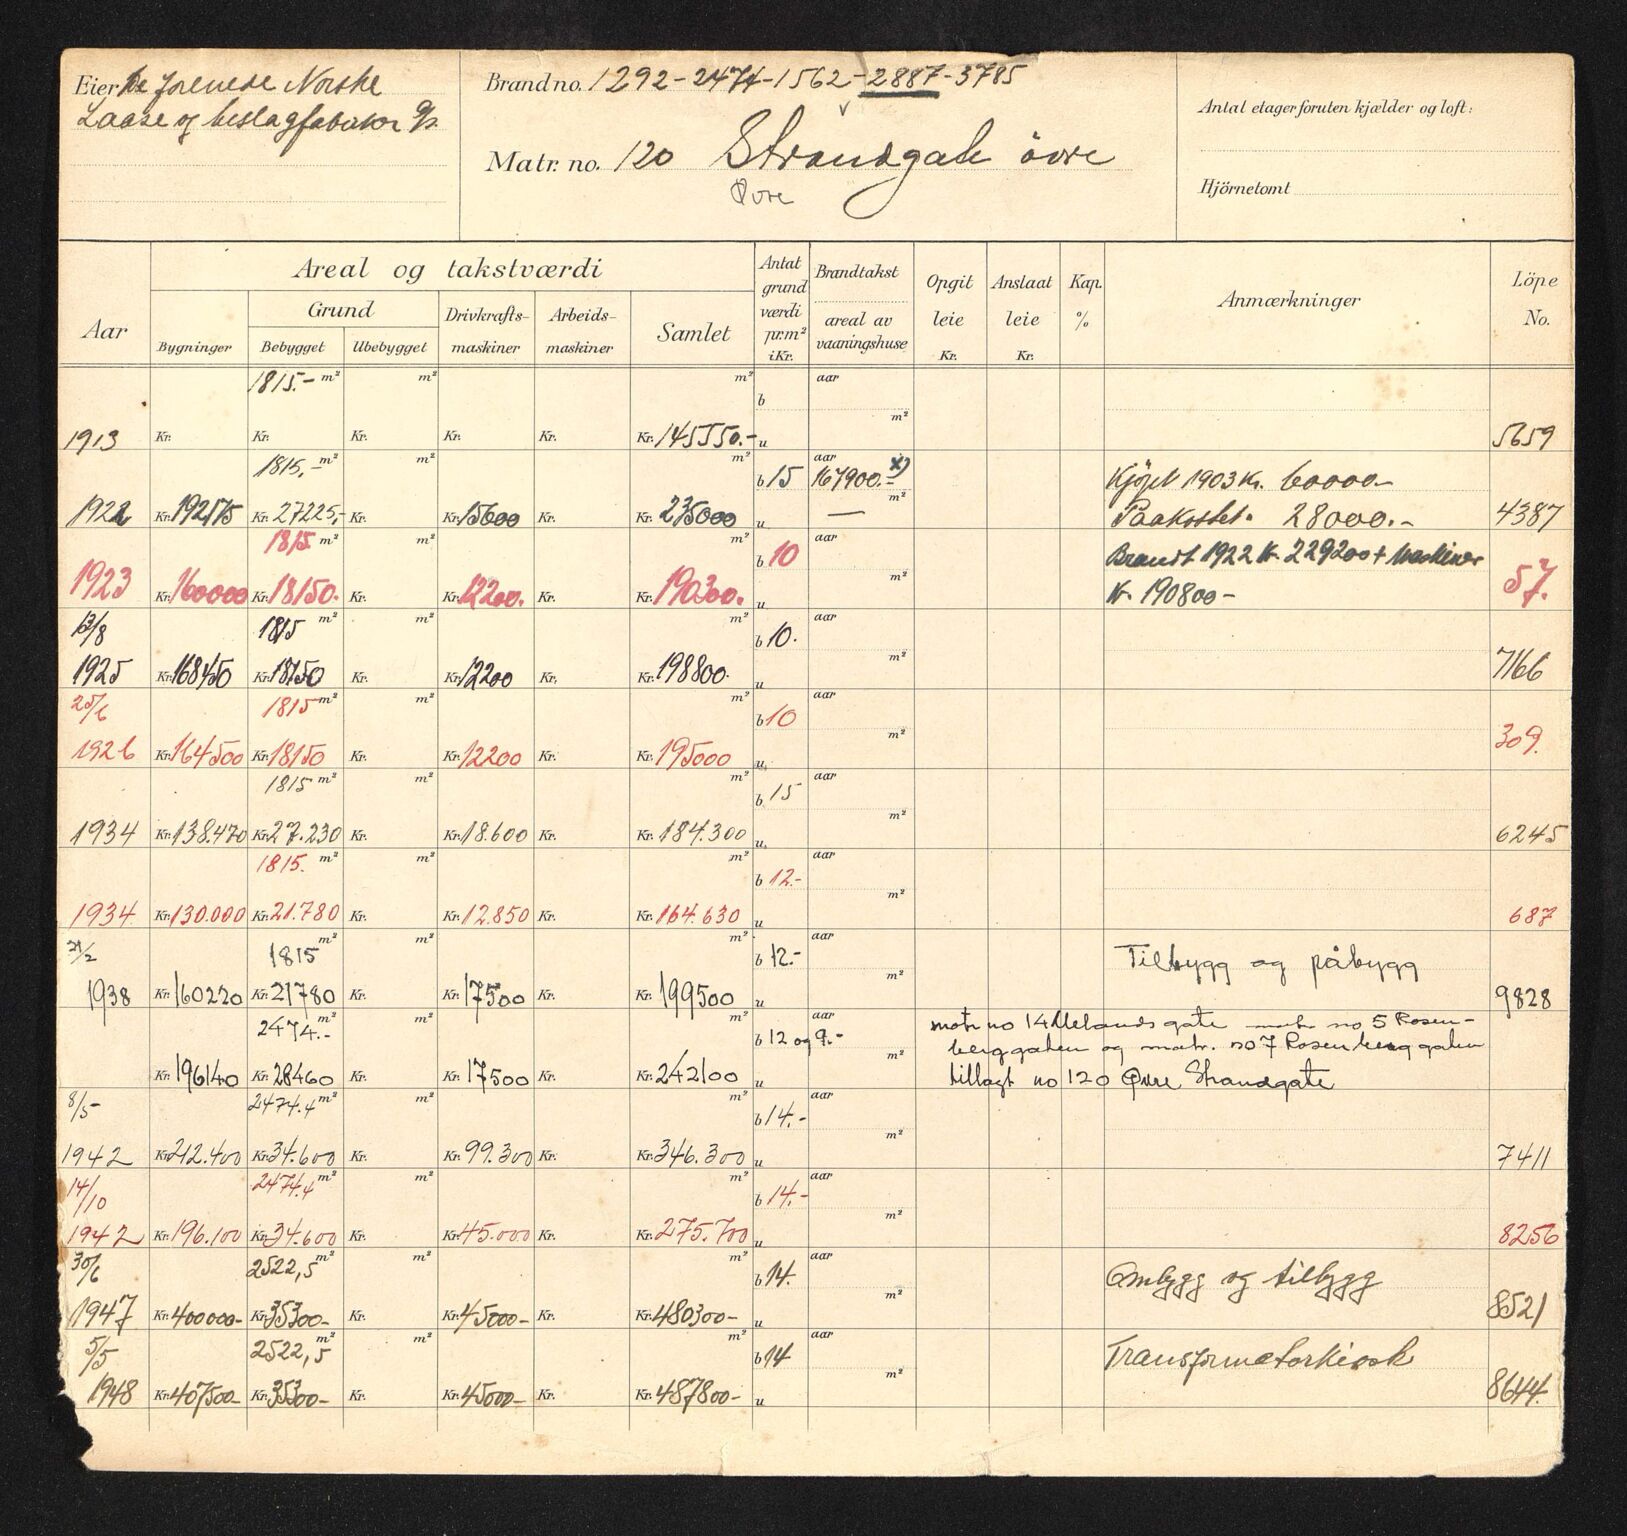 Eier De forenede Norske
Laase og beslagfabriker A/s.
Brand no. 1292-2474-1562-2887-3785
Matr. no. 120 Strandgate övre
Øvre
Antal etager foruten kjælder og loft:
Hjörnetomt
Aar
Areal og takstværdi
Grund
Bygninger
Bebygget
Ubebygget
Drivkrafts-
maskiner
Arbeids-
maskiner
Samlet
Antat
grund
værdi
pr. m²
i Kr.
Brandtakst
areal av
vaaningshuse
Opgit
leie
Kr.
Anslaat
leie
Kr.
Kap.
%
Anmærkninger
Löpe
No.
1815.- m² m² m² b aar
m²
1913 Kr. Kr. Kr. Kr. Kr. Kr. 145550.- u 5659
1815,- m² m² m² b 15 aar 167900.- x) Kjöpt 1903 Kr. 60000.-
m²
1922 Kr. 192175 Kr. 27225,- Kr. Kr. 15600 Kr. Kr. 235000 u — Paakostet. 28000.- 4387
1815 m² m² m² b 10 aar Brandt 1922 Kr. 229200 + Maskiner
m²
1923 Kr. 160000 Kr. 18150. Kr. Kr. 12200. Kr. Kr. 190300. u Kr. 190800- 57.
13/8 1815 m² m² m² b 10. aar
m²
1925 Kr. 168450 Kr. 18150 Kr. Kr. 12200 Kr. Kr. 198800. u 7166
25/6 1815 m² m² m² b 10 aar
m²
1926 Kr. 164500 Kr. 18150 Kr. Kr. 12200 Kr. Kr. 195000 u 309.
1815 m² m² m² b 15 aar
m²
1934 Kr. 138.470 Kr. 27.230 Kr. Kr. 18.600 Kr. Kr. 184.300 u 6245
1815. m² m² m² b 12.- aar
m²
1934 Kr. 130.000 Kr. 21.780 Kr. Kr. 12.850 Kr. Kr. 164.630 u 687
21/2 1815 m² m² m² b 12.- aar Tilbygg og påbygg
m²
1938 Kr. 160220 Kr. 21780 Kr. Kr. 17500 Kr. Kr. 199500 u 9828
2474.- m² m² m² b 12 og 9.- aar matr no 14 Melands gate matr. no 5 Rosen-
m² berggaten og matr. no 7 Rosenberggaten
Kr. 196140 Kr. 28460 Kr. Kr. 17500 Kr. Kr. 242100 u tillagt no 120 Øvre Strandgate
8/5- 2474.4 m² m² m² b 14.- aar
m²
1942 Kr. 212.400 Kr. 34.600 Kr. Kr. 99.300 Kr. Kr. 346.300 u 7411
14/10 2474.4 m² m² m² b 14.- aar
m²
1942 Kr. 196.100 Kr. 34.600 Kr. Kr. 45.000 Kr. Kr. 275.700 u 8256
30/6 2522,5 m² m² m² b 14. aar Ombygg og tilbygg
m²
1947 Kr. 400000- Kr. 35300- Kr. Kr. 45000- Kr. Kr. 480300- u 8521
5/5 2522,5 m² m² m² b 14 aar Transformatorkiosk
m²
1948 Kr. 407500- Kr. 35300- Kr. Kr. 45000- Kr. Kr. 487800- u 8644.